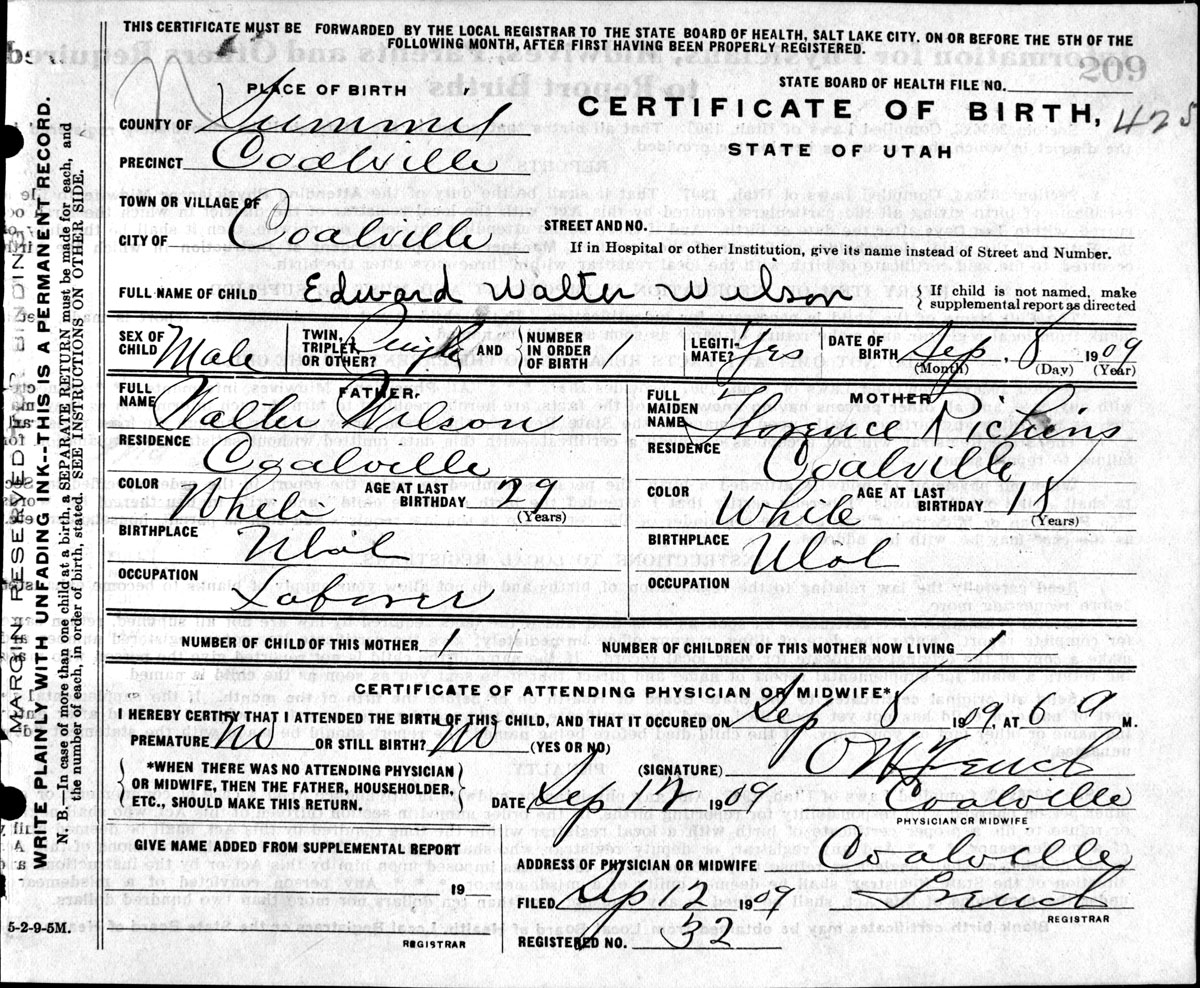 THIS CERTIFICATE MUST BE FORWARDED BY THE LOCAL REGISTRAR TO THE STATE BOARD OF HEALTH, SALT LAKE CITY. ON OR BEFORE THE 5TH OF THE
FOLLOWING MONTH, AFTER FIRST HAVING BEEN PROPERLY REGISTERED.
209
STATE BOARD OF HEALTH FILE NO.
PLACE OF BIRTH
CERTIFICATE OF BIRTH, 425
COUNTY OF Summit
STATE OF UTAH
PRECINCT Coalville
TOWN OR VILLAGE OF
CITY OF Coalville
STREET AND NO.
If in Hospital or other Institution, give its name instead of Street and Number.
FULL NAME OF CHILD Edward Walter Wilson
If child is not named, make
supplemental report as directed
SEX OF CHILD Male
TWIN, TRIPLET OR OTHER? Single AND NUMBER IN ORDER OF BIRTH
LEGITIMATE? Yes
DATE OF BIRTH Sep. 8 1909
(Month) (Day) (Year)
FATHER
FULL NAME Walter Wilson
RESIDENCE
Coalville
COLOR White AGE AT LAST BIRTHDAY 29
(Years)
BIRTHPLACE Utah
OCCUPATION
Laborer
MOTHER
FULL MAIDEN NAME Florence Richins
RESIDENCE
Coalville
COLOR White AGE AT LAST BIRTHDAY 18
(Years)
BIRTHPLACE Utah
OCCUPATION
NUMBER OF CHILD OF THIS MOTHER 1 NUMBER OF CHILDREN OF THIS MOTHER NOW LIVING 1
CERTIFICATE OF ATTENDING PHYSICIAN OR MIDWIFE*
I HEREBY CERTIFY THAT I ATTENDED THE BIRTH OF THIS CHILD, AND THAT IT OCCURED ON Sep 8 1909, AT 6 a M.
PREMATURE No OR STILL BIRTH? No (YES OR NO)
*WHEN THERE WAS NO ATTENDING PHYSICIAN
OR MIDWIFE, THEN THE FATHER, HOUSEHOLDER,
ETC., SHOULD MAKE THIS RETURN.
(SIGNATURE)
DATE Sep 1909 Coalville
PHYSICIAN OR MIDWIFE
GIVE NAME ADDED FROM SUPPLEMENTAL REPORT
19
REGISTRAR
ADDRESS OF PHYSICIAN OR MIDWIFE Coalville
FILED 1909
REGISTRAR
REGISTERED NO. 32
5-2-9-5M.
MARGIN RESERVED FOR BINDING
WRITE PLAINLY WITH UNFADING INK--THIS IS A PERMANENT RECORD.
N. B.—In case of more than one child at a birth, a SEPARATE RETURN must be made for each, and
the number of each, in order of birth, stated. SEE INSTRUCTIONS ON OTHER SIDE.